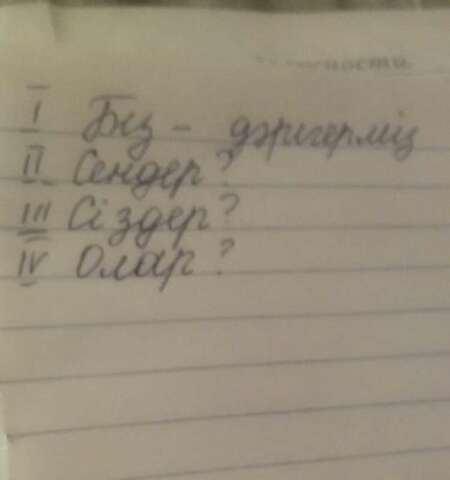 ности.
I Біз - дәрігерміз
II Сендер?
III Сіздер?
IV Олар?